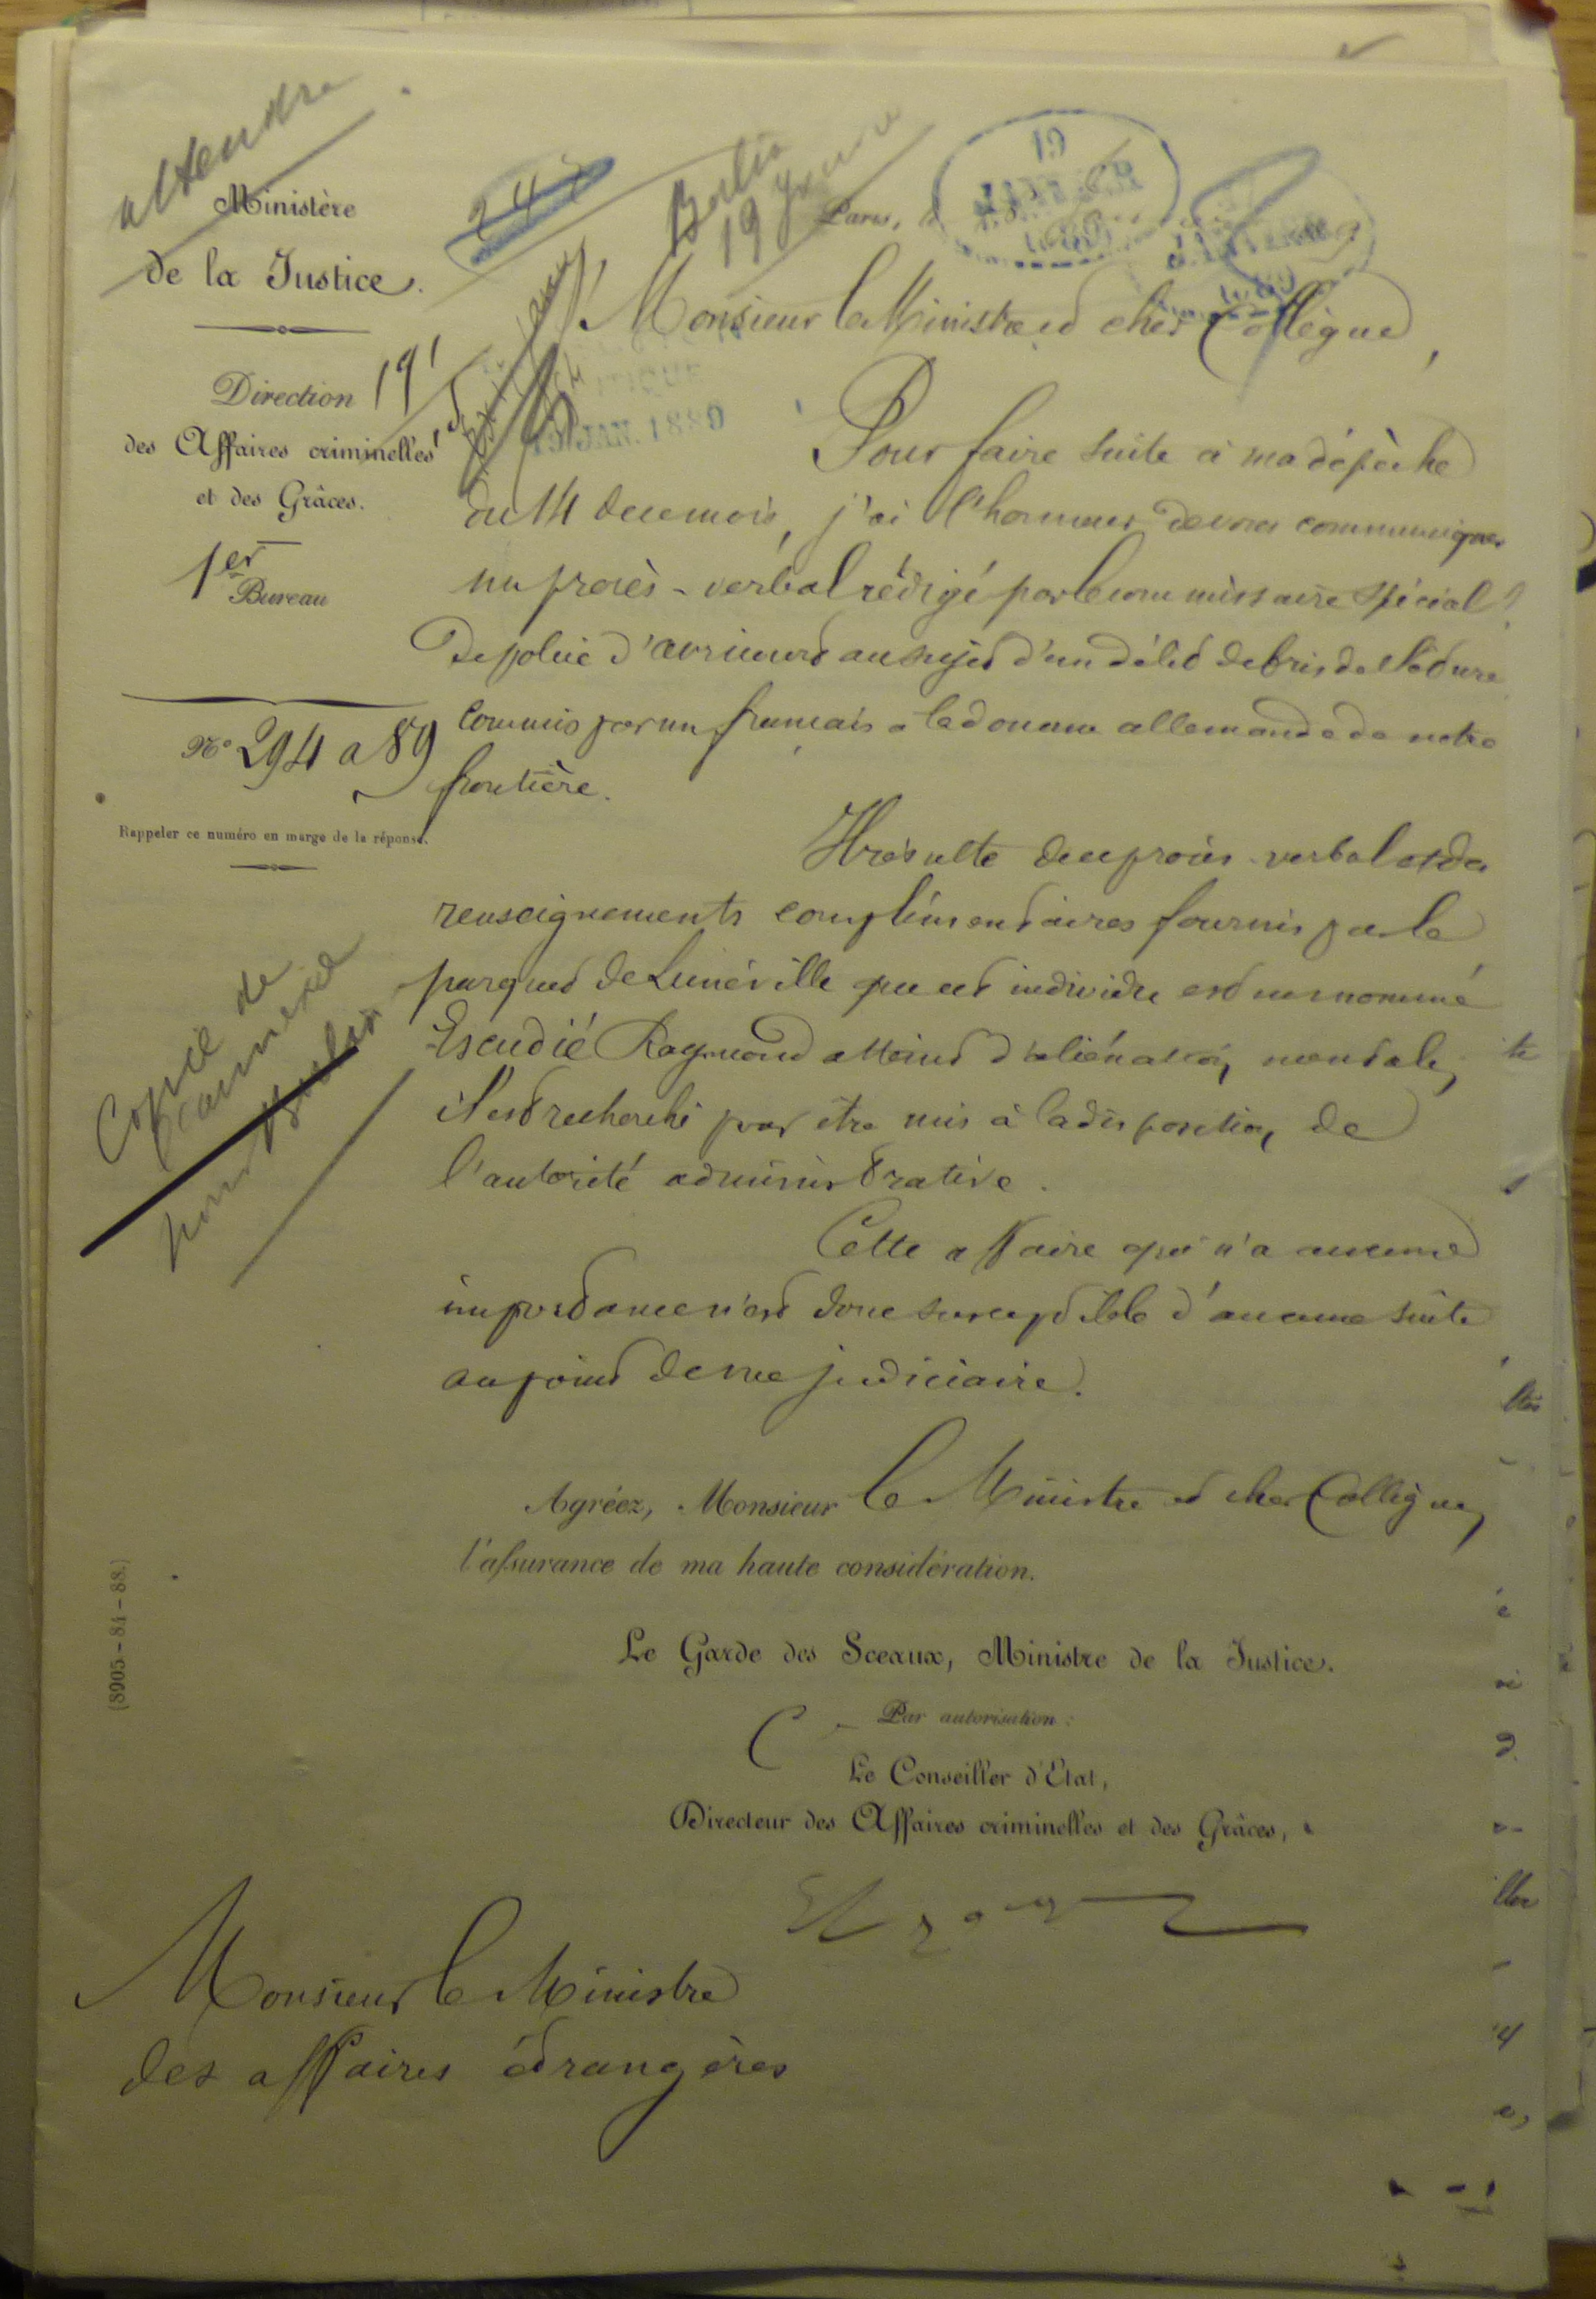 attendre
Ministère
de la Justice.
Direction
des Affaires criminelles
et des Grâces.
1er Bureau
No 294 a 89
Rappeler ce numéro en marge de la réponse.
Copie de
l'annexe
pour
(8905-84-88.)
24
Berlin
19 janvier
Paris, le
19 JAN. 1889
Monsieur le Ministre et cher Collègue,
Pour faire suite à ma dépêche
du 14 de ce mois, j'ai l'honneur de vous communiquer
un procès-verbal rédigé par le commissaire spécial
de police d'Avricourt au sujet d'un délit de bris de clôture
commis par un français à la douane allemande de notre
frontière.
Il résulte de ce procès-verbal et des
renseignements complémentaires fournis par le
parquet de Lunéville que cet individu est un nommé
Escudié Raymond atteint d'aliénation mentale;
il est recherché pour être mis à la disposition de
l'autorité administrative.
Cette affaire qui n'a aucune
importance n'est donc susceptible d'aucune suite
au point de vue judiciaire.
Agréez, Monsieur le Ministre et cher Collègue,
l'assurance de ma haute considération.
Le Garde des Sceaux, Ministre de la Justice.
Par autorisation :
Le Conseiller d'État,
Directeur des Affaires criminelles et des Grâces,
Monsieur le Ministre
des affaires étrangères